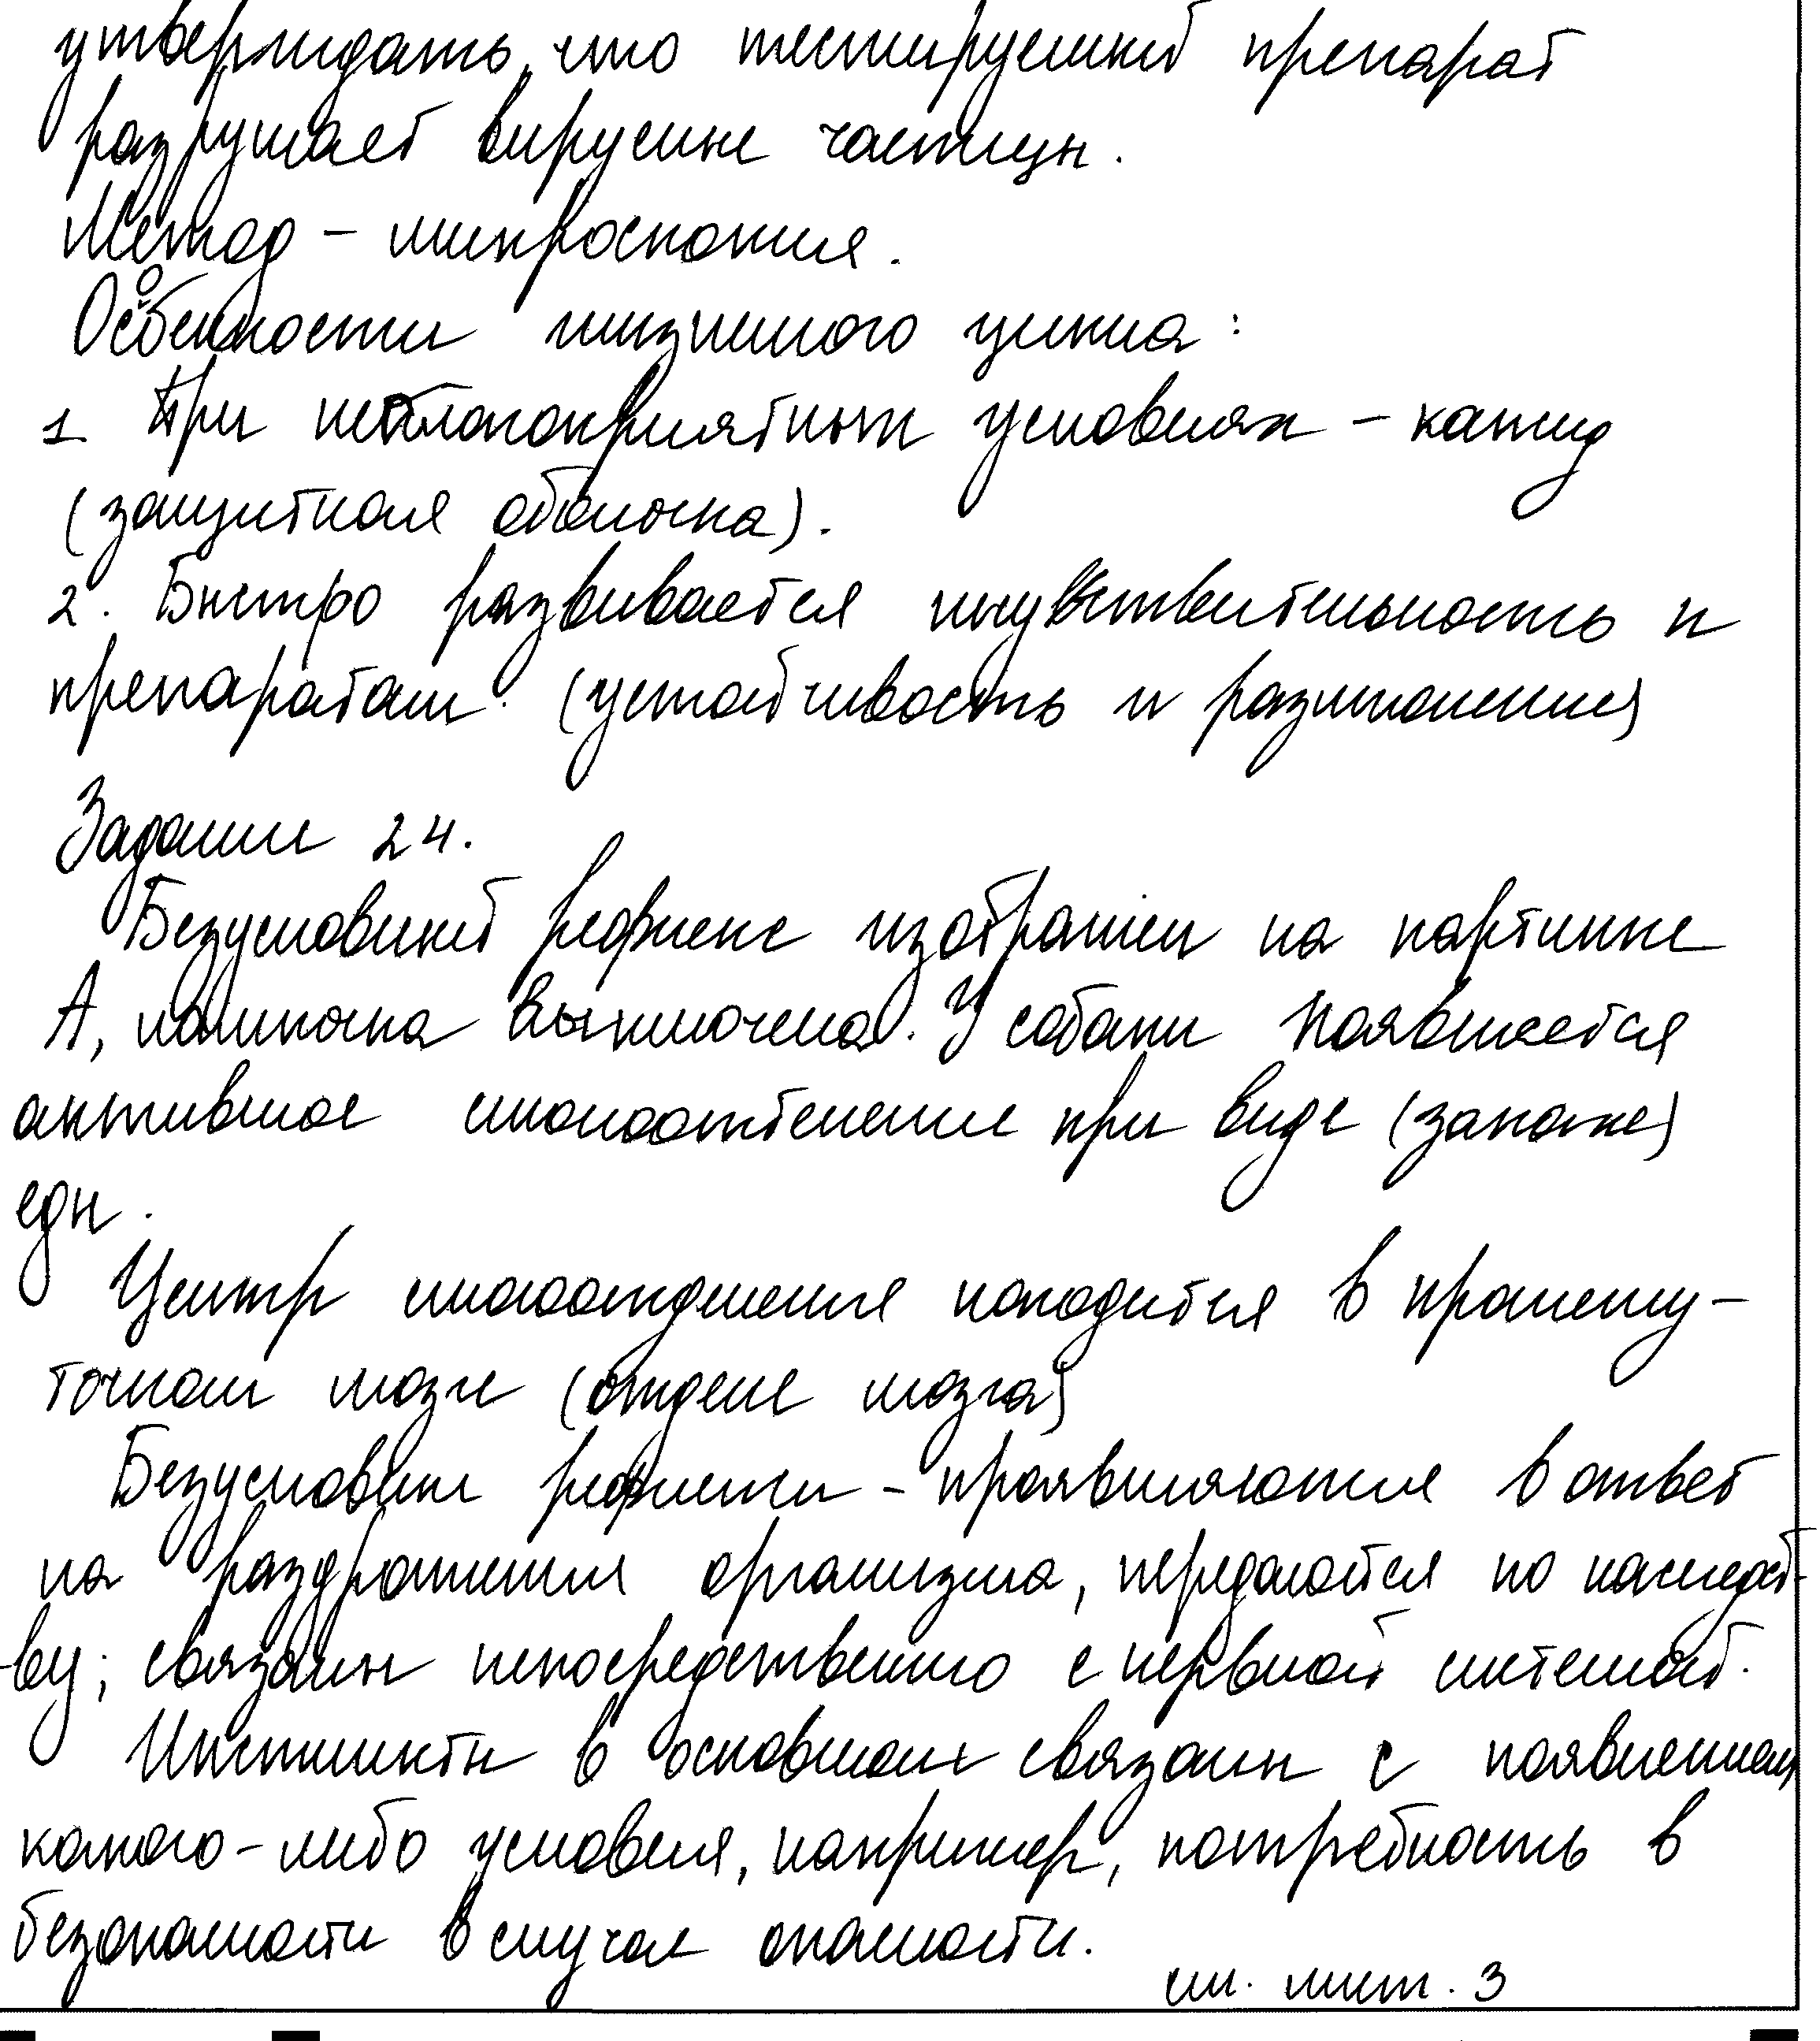 утверждать, что тестируемый препарат
разрушает вирусные частицы.
Метод – микроскопия.
Особенности жизненного цикла:
1. При неблагоприятных условиях – капсид
(защитная оболочка).
2. Быстро развивается чувствительность к
препаратам. (устойчивость и размножение)
Задание 24.
Безусловный рефлекс изображен на картинке
А, лампочка выключена. У собаки появляется
активное слюноотделение при виде (запахе)
еды.
Центр слюноотделения находится в промежу-
точном мозге (отделе мозга)
Безусловные рефлексы – проявляются в ответ
на раздражения организма, передаются по наследст-
ву; связаны непосредственно с нервной системой.
Инстинкты в основном связаны с появлением
какого-либо условия, например, потребность в
безопасности в случае опасности.
см. лист. 3